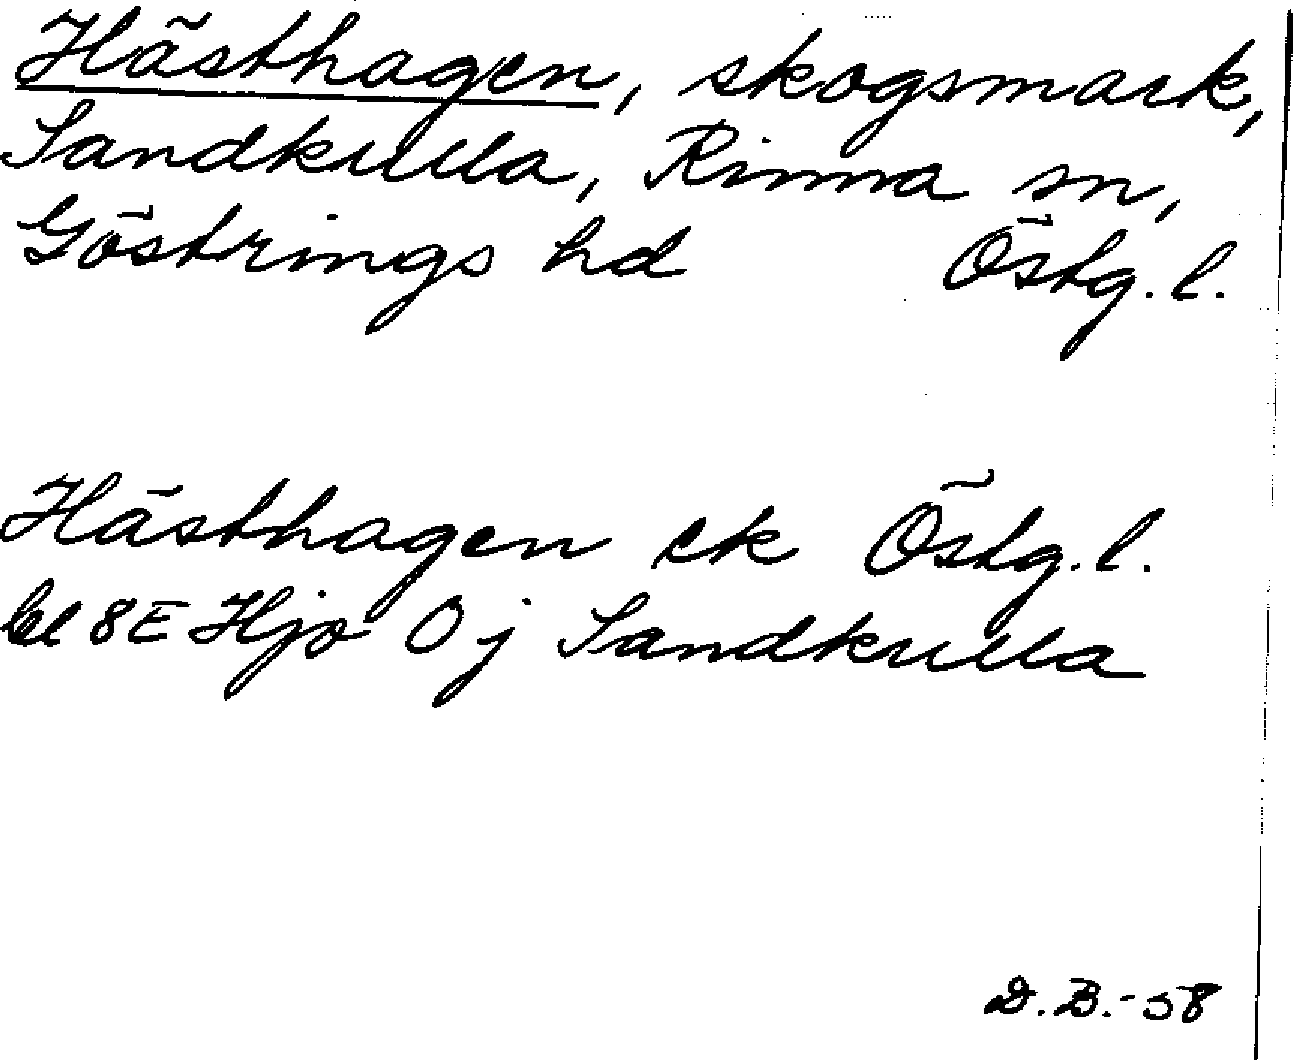 Hästhagen, skogsmark,
Sandkulla, Rinna sn,
Göstrings hd Östg. l.
Hästhagen ek Östg. l.
bl 8E Hjo 0j Sandkulla
D.B.-58